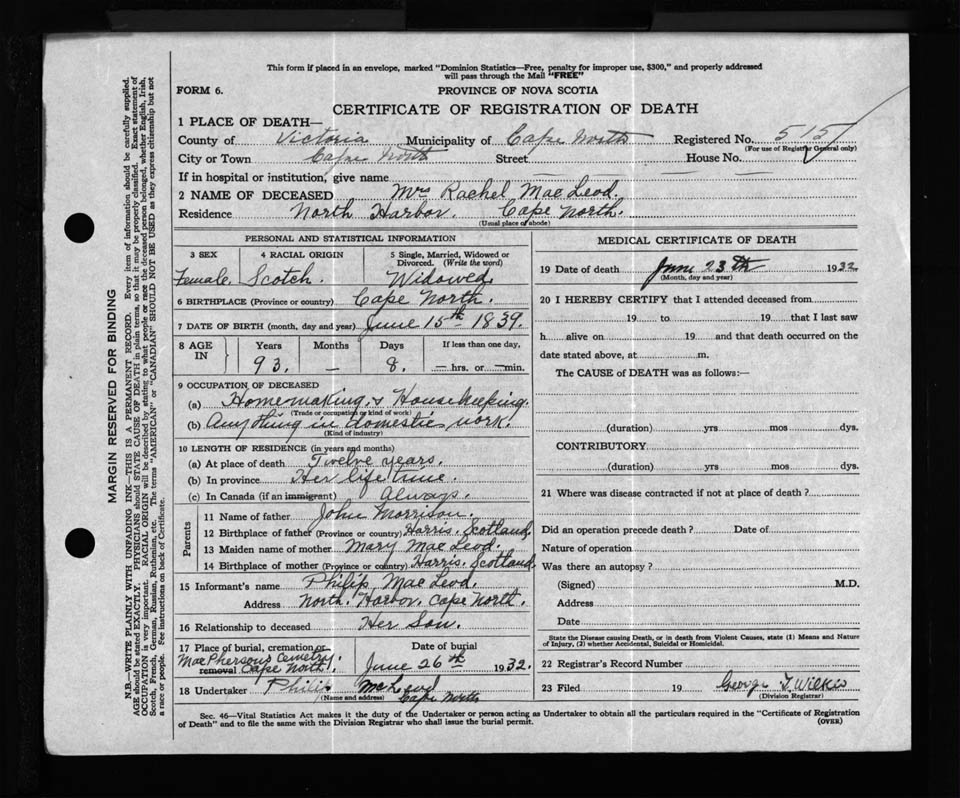 This form if placed in an envelope, marked "Dominion Statistics—Free, penalty for improper use, $300," and properly addressed
will pass through the Mail "FREE"
FORM 6.
PROVINCE OF NOVA SCOTIA
CERTIFICATE OF REGISTRATION OF DEATH
1 PLACE OF DEATH—
County of Victoria Municipality of Cape North Registered No. 515
(For use of Registrar General only)
City or Town Cape North Street — House No. —
If in hospital or institution, give name —
2 NAME OF DECEASED Mrs Rachel MacLeod.
Residence North Harbor. Cape North.
(Usual place of abode)
PERSONAL AND STATISTICAL INFORMATION
3 SEX 4 RACIAL ORIGIN 5 Single, Married, Widowed or
Divorced. (Write the word)
Female. Scotch. Widowed.
6 BIRTHPLACE (Province or country) Cape North.
7 DATE OF BIRTH (month, day and year) June 15th 1839.
8 AGE IN Years Months Days If less than one day,
93. — 8. — hrs. or — min.
9 OCCUPATION OF DECEASED
(a) Homemaking, & Housekeeping.
(Trade or occupation or kind of work)
(b) Anything in domestic work.
(Kind of industry)
10 LENGTH OF RESIDENCE (in years and months)
(a) At place of death Twelve years.
(b) In province Her life time.
(c) In Canada (if an immigrant) Always.
Parents
11 Name of father John Morrison.
12 Birthplace of father (Province or country) Harris. Scotland.
13 Maiden name of mother Mary MacLeod.
14 Birthplace of mother (Province or country) Harris. Scotland
15 Informant's name Philip MacLeod.
Address North. Harbor. Cape North.
16 Relationship to deceased Her Son.
17 Place of burial, cremation or removal Date of burial
MacPhersons Cemetry. Cape North. June 26th 1932.
18 Undertaker Philip McLeod
(Name and address) Cape North
MEDICAL CERTIFICATE OF DEATH
19 Date of death June 23th 1932
(Month, day and year)
20 I HEREBY CERTIFY that I attended deceased from
19 to 19 that I last saw
h alive on 19 and that death occurred on the
date stated above, at m.
The CAUSE of DEATH was as follows:—
(duration) yrs mos dys.
CONTRIBUTORY
(duration) yrs mos dys.
21 Where was disease contracted if not at place of death?
Did an operation precede death? Date of
Nature of operation
Was there an autopsy?
(Signed) M.D.
Address
Date
State the Disease causing Death, or in death from Violent Causes, state (1) Means and Nature
of Injury, (2) whether Accidental, Suicidal or Homicidal.
22 Registrar's Record Number
23 Filed 19 George T. Wilkie
(Division Registrar)
Sec. 46—Vital Statistics Act makes it the duty of the Undertaker or person acting as Undertaker to obtain all the particulars required in the "Certificate of Registration
of Death" and to file the same with the Division Registrar who shall issue the burial permit. (OVER)
MARGIN RESERVED FOR BINDING
N.B.—WRITE PLAINLY WITH UNFADING INK—THIS IS A PERMANENT RECORD. Every item of information should be carefully supplied.
AGE should be stated EXACTLY. PHYSICIANS should STATE CAUSE OF DEATH in plain terms, so that it may be properly classified. Exact statement of
OCCUPATION is very important. RACIAL ORIGIN will be described by stating to what people or race the deceased person belonged, whether English, Irish,
Scotch, French, German, Russian, Ruthenian, etc. The terms "AMERICAN" or "CANADIAN" SHOULD NOT BE USED as they express citizenship but not
a race or people. See instructions on back of Certificate.